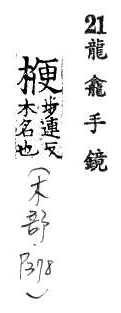 21龍龕手鏡
楩步連反木名也
(木部·P378)